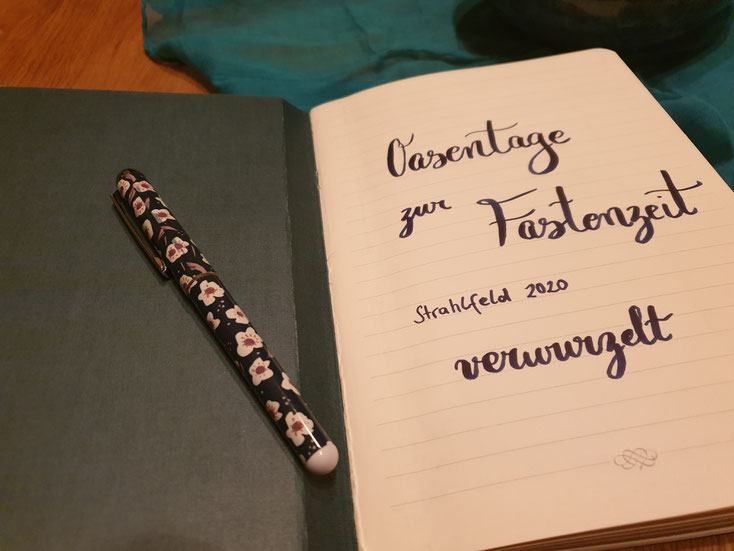 Oasentage
zur Fastenzeit
Strahlfeld 2020
verwurzelt